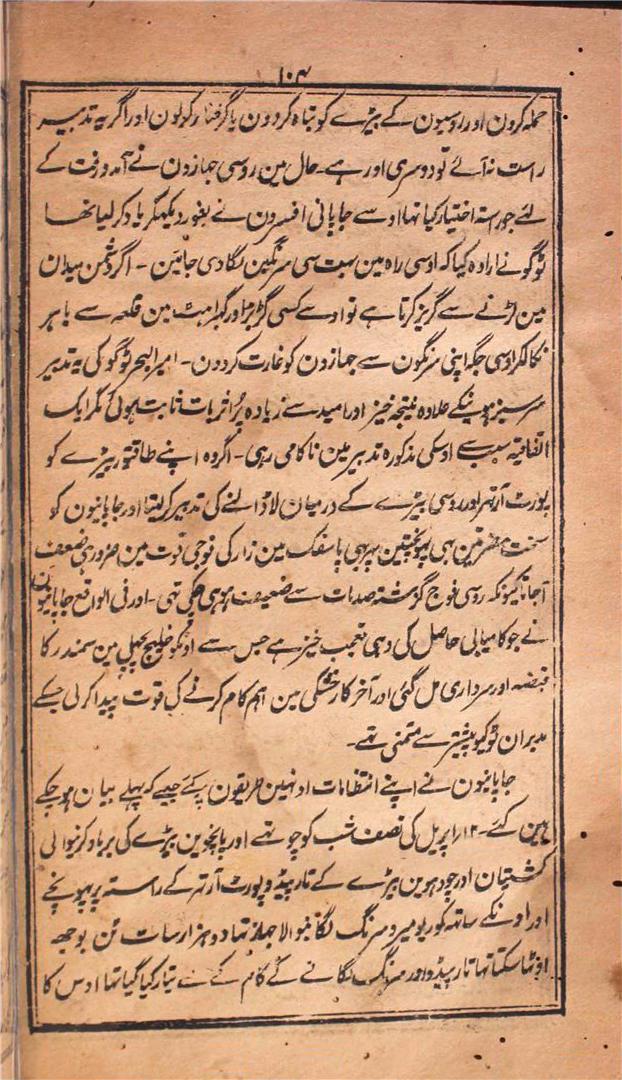 ۱۰۴
حملہ کرون اور روسیون کے بیڑے کو تباہ کردون یا گرفتار کرلون اور اگر یہ تدبیر
راست نہ آئے تو دوسری اور ہے۔ حال مین روسی جہازون نے آمدورفت کے
لئے جو راستہ اختیار کیا تہا اوسے جاپانی افسرون نے بغور دیکہکر یاد کر لیا تھا
ٹوگو نے ارادہ کیا کہ اوسی راہ مین بہت سی سرنگین لگا دی جائین - اگر دشمن میدان
مین لڑنے سے گریز کرتا ہے تو اوسے کسی گڑبڑ اور گہبراہٹ مین قلعہ سے باہر
نکالکر اوسی جگہ اپنی سرنگون سے جہازون کو غارت کردون - امیر البحر ٹوگو کی یہ تدبیر
سرسبز ہونیکے علاوہ نتیجہ خیز اور امید سے زیادہ پُر اثر بات ثابت ہوئی مگر ایک
اتفاقیہ سبب سے اوسکی مذکورہ تدبیر مین ناکامی رہی - اگر وہ اپنے طاقتور بیڑے کو
پورٹ آرتھر اور روسی بیڑے کے درمیان لا ڈالنے کی تدبیر کر لیتا اور جاپانیون کو
سخت مضرتین بہی پہونچتین پہر بہی پاسفک مین زار کی فوجی قوت مین ضرور ہی ضعف
آجاتا کیونکہ روسی فوج گزشتہ صدمات سے ضعیف ہو ہی چکی تہی - اور فی الواقع جاپانیون
نے جو کامیابی حاصل کی وہی تعجب خیز ہے جس سے اونکو خلیج پچیلی مین سمندر کا
قبضہ اور سرداری مل گئی اور آخر کار خشکی مین اہم کام کرنے کی قوت پیدا کر لی جسکے
مدبران ٹوکیو پیشتر سے متمنی تہے -
جاپانیون نے اپنے انتظامات اونہین طریقون پر کئے جیسے کہ پہلے بیان ہو چکے
ہین کئے - ۱۲ اپریل کی نصف شب کو چوتہے اور پانچوین بیڑے کی برباد کرنیوالی
کشتیان اور چودہوین بیڑے کے تارپیڈو پورٹ آرتہر کے راستہ پر پہونچے
اور اونکے ساتہ کوریومیرو سرنگ لگانیوالا جہاز تہا دو ہزار سات ٹن بوجھ
اوٹہا سکتا تہا تارپیڈو اور سرنگ لگانے کے کام کے لئے تیار کیا گیا تہا اوس کا